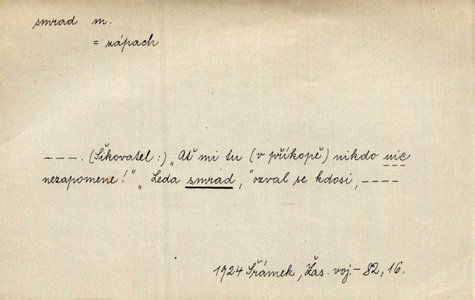 smrad m.
= zápach
---. (Šikovatel:) „Ať mi tu (v příkopě) nikdo nic
nezapomene!" „Leda smrad," ozval se kdosi, ----
1924 Šrámek, Žas. voj. - 82, 16.